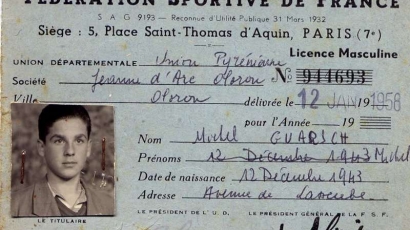 FÉDÉRATION SPORTIVE DE FRANCE
S A G 9193 — Reconnue d'Utilité Publique 31 Mars 1932
Siège : 5, Place Saint-Thomas d'Aquin, PARIS (7e)
Licence Masculine
UNION DÉPARTEMENTALE Union Pyrénéenne
Société Jeanne d'Arc Oloron No 944693
Ville Oloron délivrée le 12 JAN 1958
pour l'Année 19
Nom Michel GUARSCH
Prénoms 12 Décembre 1943 Michel
Date de naissance 12 Décembre 1943
Adresse Avenue de
LE TITULAIRE
LE PRÉSIDENT DE L'U. D.
LE PRÉSIDENT GÉNÉRAL DE LA F. S. F.